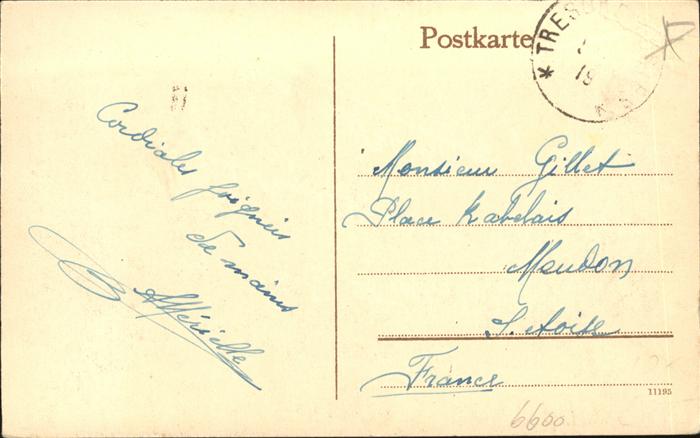 Postkarte
* TRESOR
19
Cordiales poignées
de mains
Monsieur Gillet
Place Rabelais
Meudon
S. et Oise
France
11195
6600